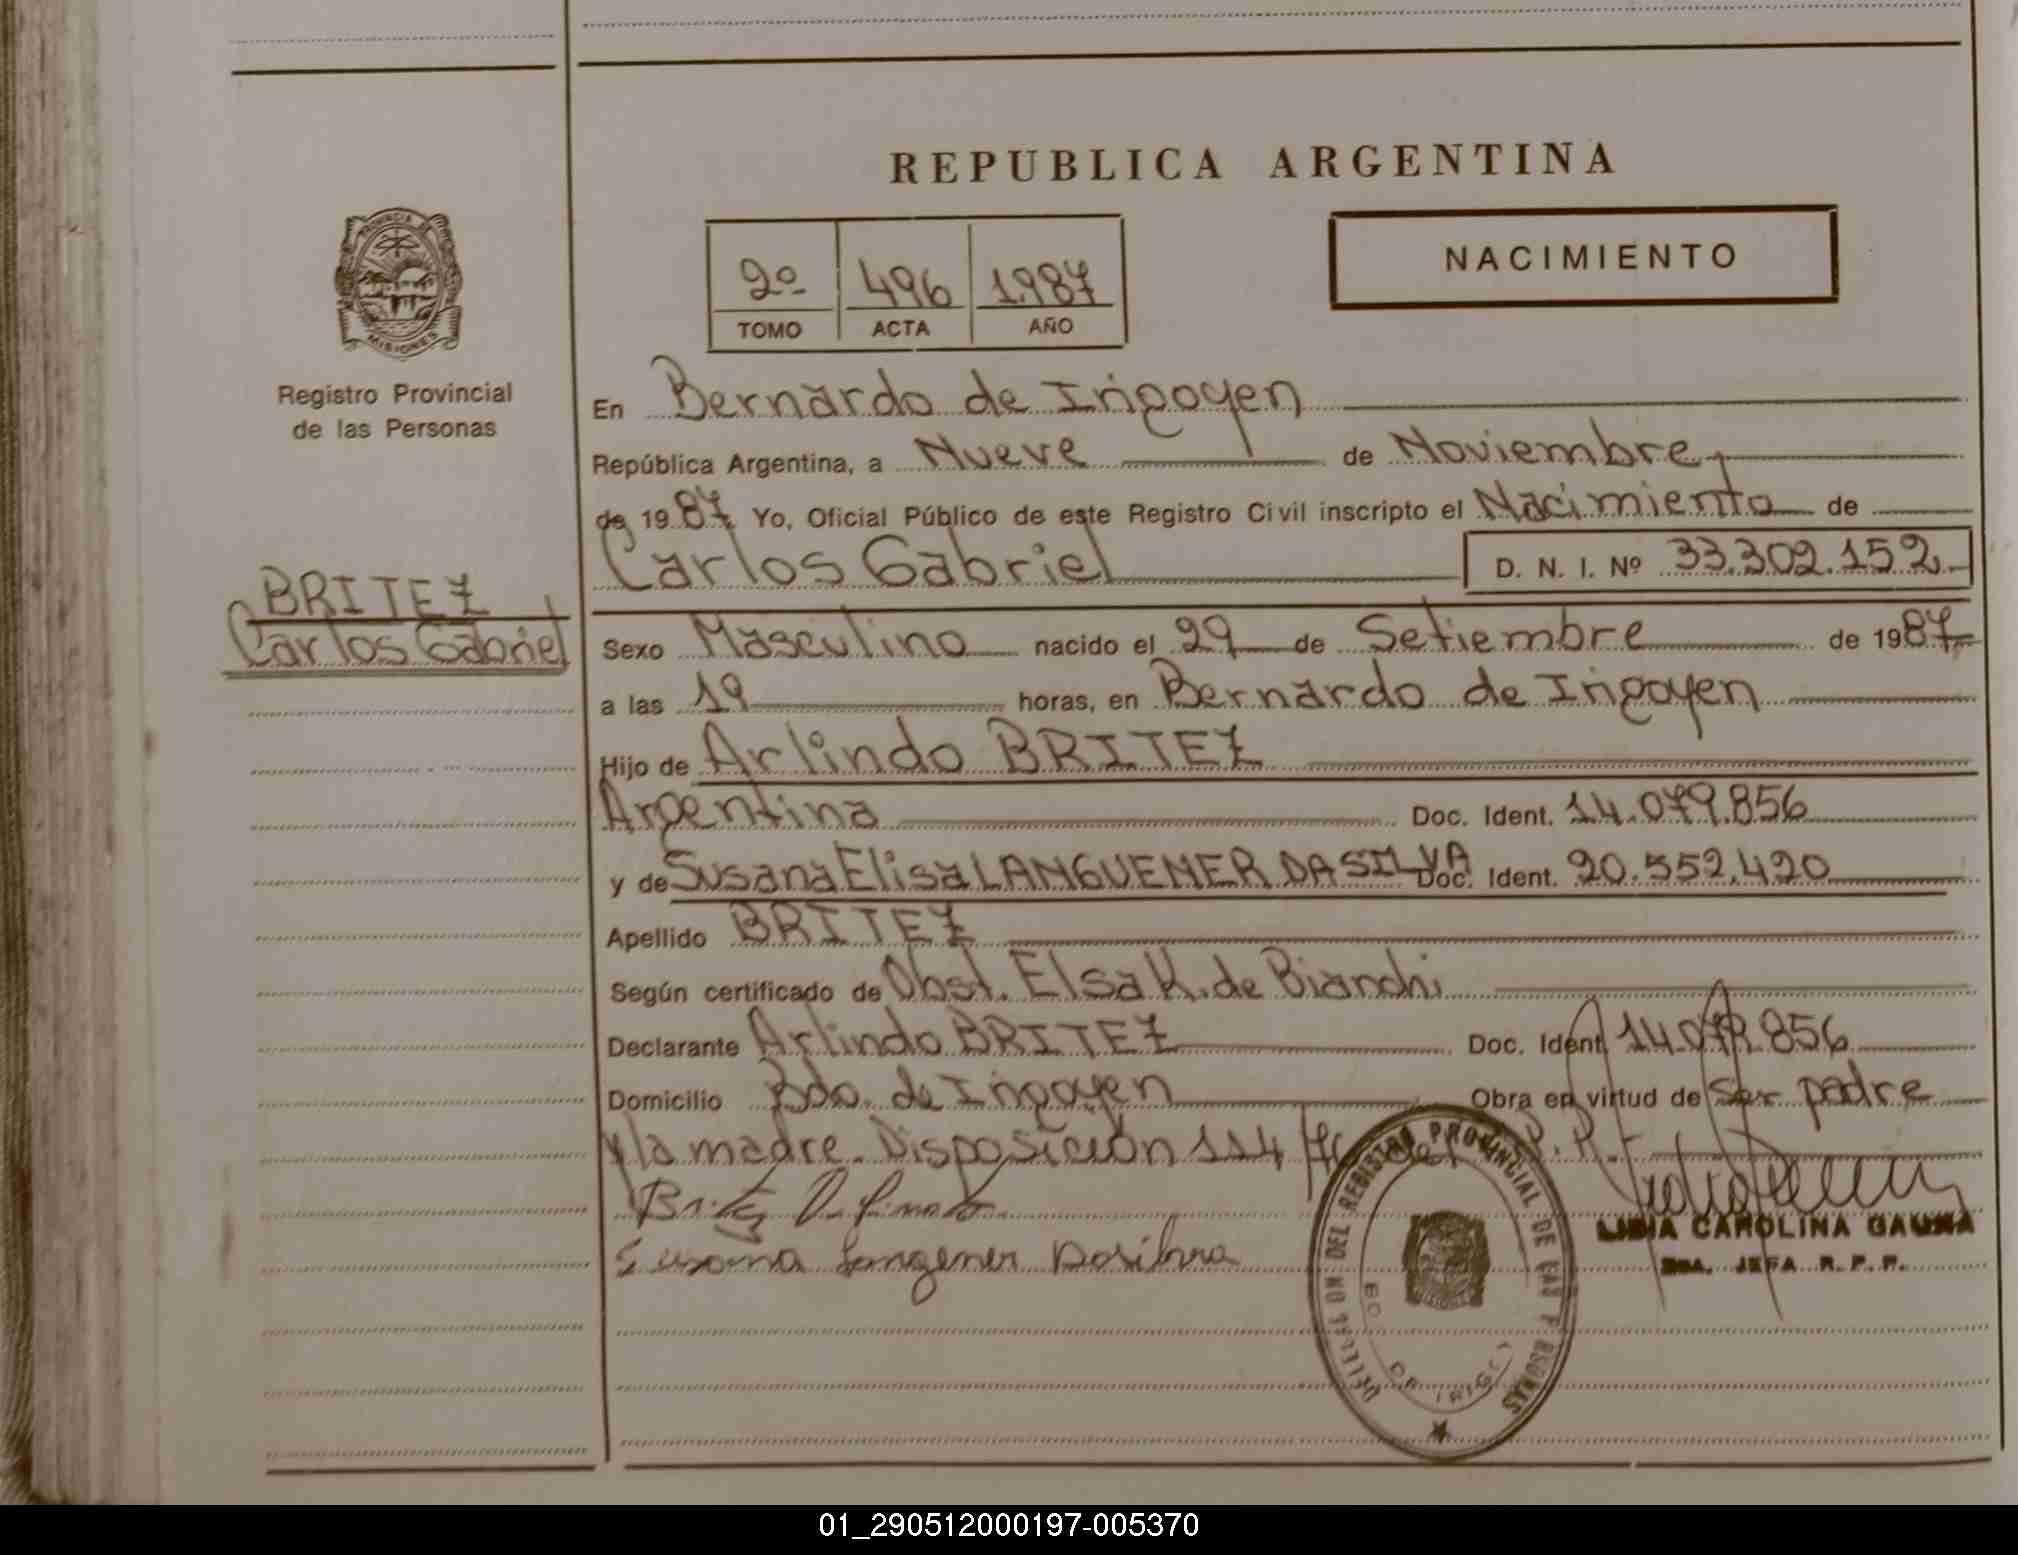 REPUBLICA ARGENTINA
PROVINCIA DE
MISIONES
Registro Provincial
de las Personas
2º 496 1.987
TOMO ACTA AÑO
NACIMIENTO
En Bernardo de Irigoyen
República Argentina, a Nueve de Noviembre
de 1987 Yo, Oficial Público de este Registro Civil inscripto el Nacimiento de
Carlos Gabriel D. N. I. Nº 33.302.152
BRITEZ
Carlos Gabriel
Sexo Masculino nacido el 29 de Setiembre de 1987
a las 19 horas, en Bernardo de Irigoyen
Hijo de Arlindo BRITEZ
Argentina Doc. Ident. 14.079.856
y de Susana Elisa LANGUENER DA SILVA Doc. Ident. 20.552.420
Apellido BRITEZ
Según certificado de Obst. Elsa K. de Bianchi
Declarante Arlindo BRITEZ Doc. Ident. 14.079.856
Domicilio Bdo. de Irigoyen Obra en virtud de ser padre
y la madre. Disposición 114 del R.P.
Britez
Susana Langener Dasilva
REGISTRO PROVINCIAL DE LAS PERSONAS
LIDIA CAROLINA GAUNA
JEFA R. P. P.
01_290512000197-005370